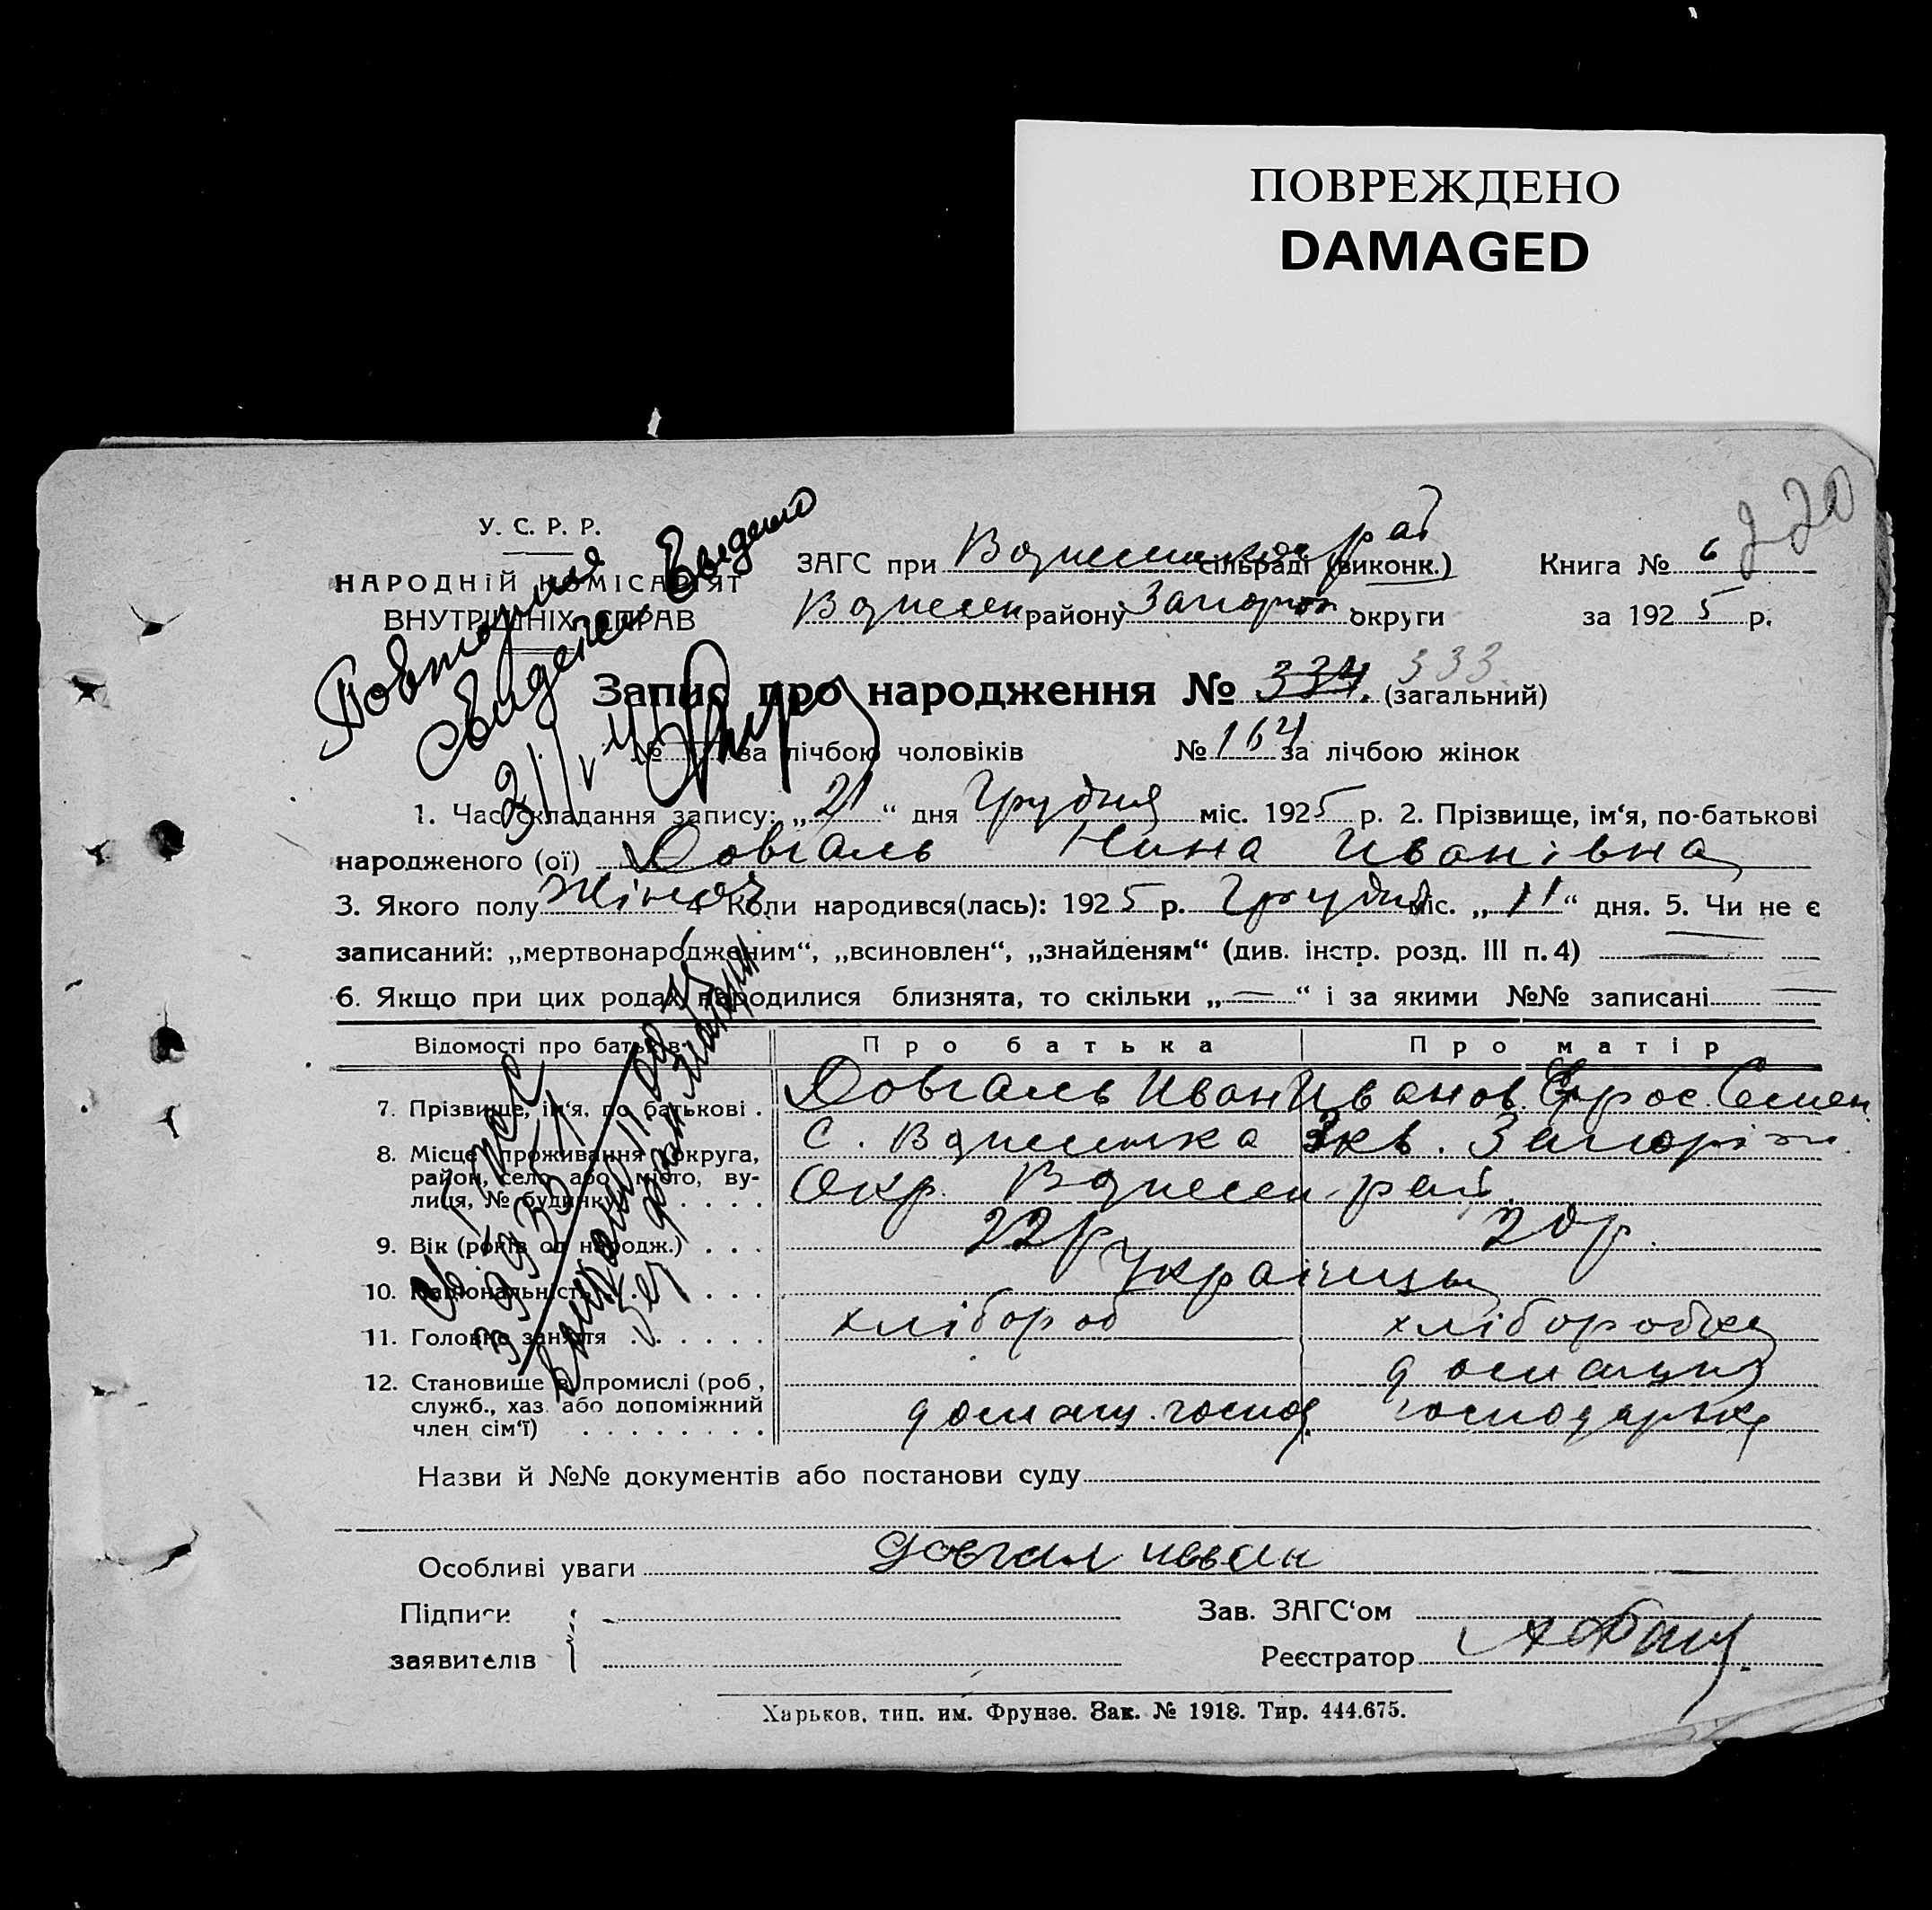 ПОВРЕЖДЕНО
DAMAGED
220
У. С. Р. Р.
НАРОДНІЙ КОМІСАРІЯТ
ВНУТРІШНІХ СПРАВ
ЗАГС при сільраді (виконк.) рай
Вознесен району Запоріж округи
Книга № 6
за 1925 р.
Повторная
Запис про народження № 334. (загальний) 333.
№ за лічбою чоловіків № 164 за лічбою жінок
1. Час складання запису: „21“ дня Грудня міс. 1925 р. 2. Прізвище, ім‘я, по-батькові
народженого (ої) Довгаль Нина Иванівна
3. Якого полу жіноч. 4. Коли народився(лась): 1925 р. Грудня міс. „11“ дня. 5. Чи не є
записаний: „мертвонародженим“, „всиновлен“, „знайденям“ (див. інстр. розд. III п. 4) —
6. Якщо при цих родах народилися близнята, то скільки „—“ і за якими №№ записані —
Відомості про батьків: Про батька Про матір
7. Прізвище, ім‘я, по батькові . Довгаль Иван Иванов Семен.
8. Місце проживання (округа, район, село або місто, вулиця, № будинку) . . . . с. Вознесенка 3 кв. Запоріж
Окр. Вознесен. рай.
9. Вік (років од народж.) . . . 22 р 20 р.
10. Національність . . . . . . . Українцы
11. Головне заняття . . . . . . хлібороб хліборобка
12. Становище в промислі (роб., служб., хаз. або допоміжний член сім‘ї) . . . . . . . . домашн. господ. домашня
господарка
Назви й №№ документів або постанови суду
Особливі уваги довгал иван
Підписи
заявителів
Зав. ЗАГС‘ом
Реєстратор
Харьков, тип. им. Фрунзе. Зак. № 1918. Тир. 444.675.